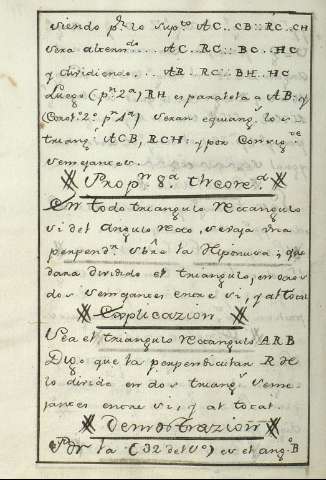 siendo pr. lo supto AC.. CB :: RC.. CH
sera alternado... AC.. RC :: BC.. HC
y dividiendo... AR.. RC :: BH.. HC
Luego (pn 2a) RH es paralela a AB: y
(Corolo 2o pn 4a) seran equiangulos los
triangs ACB, RCH: y por Consigte
semejantes.
Propn 8a theored
En todo triangulo rectangulo
si del angulo recto, se baja una
perpendr sbre la Hipotnusa; que
dara dividido el triangulo, en otros
dos semejantes entre si, y al total
Explicazion
Sea el triangulo rectangulo ARB
Digo que la perpendicular R H
lo divide en dos triangs seme
jantes entre si, y al total
Demostrazion
Por la (32 del 1o) es el ango B